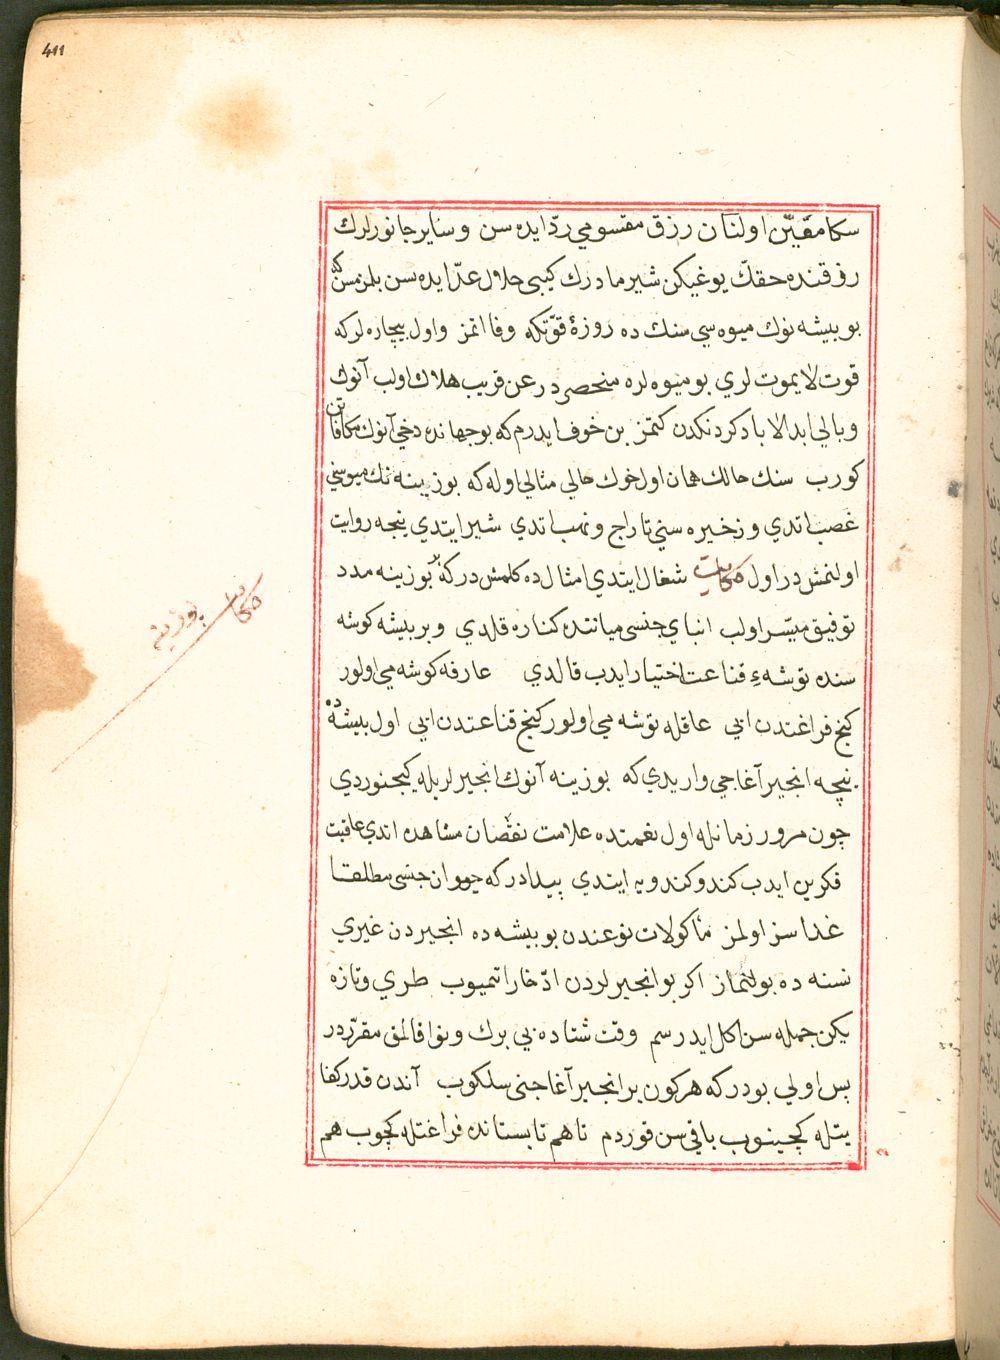 411
سكا مقيّن اولنان رزق مقسومي ردّ ايده سن و ساير جانورلرك
رزقنده حقك يوغيكن شير مادرك كيبى حلال عدّ ايده سن بلمزمسن كه
بو بيشه نوك ميوه سي سنك ده روزهٔ قوّتكه وفا اتمز و اول بيچاره لر كه
قوت لايموت لري بو ميوه لره منحصردر عن قريب هلاك اولب آنوك
وبالي ابد الاباد كردنكدن كتمز بن خوف ايدرم كه بو جهانده دخي آنوك مكافاتن
كورب سنك حالك همان اول خوك حالي مثالي اوله كه بوزينه نك ميوسني
غصب اتدي و ذخيره سني تاراج و نهب اتدي شير ايتدي نيجه روايت
اولنمش در اول حكايت شغال ايتدي امثال ده كلمش در كه بر بوزينه مدد
توفيق ميسّر اولب انباي جنسى ميانندن كناره قلدي و بر بيشه كوشه
سنده توشهء قناعت اختيار ايدب قالدي عارفه كوشه مي اولور
كنج فراغتدن ايى عاقله توشه مي اولور كنج قناعتدن ايى اول بيشه ده
نيچه انجير آغاجي واريدي كه بوزينه آنوك انجيرلريله كيجنوردي
چون مرور زمانله اول نعمتده علامت نقصان مشاهده اندي عاقبت
فكرين ايدب كندو كندويه ايتدي پيدادر كه حيوان جنسى مطلقا
غذاسز اولمز مأكولات نوعندن بو بيشه ده انجيردن غيري
نسنه ده بولنماز اكر بو انجيرلردن ادّخار اتميوب طري و تازه
يكن جمله سن اكل ايدرسم وقت شتاده بي برك و نوا قالمق مقرّردر
بس اولي بودر كه هركون بر انجير آغاجنى سلكوب آندن قدر كفا
يتله كچينوب باقي سن قوردم تا هم تابستانده فراغتله كچوب هم
حكايت بوزينه